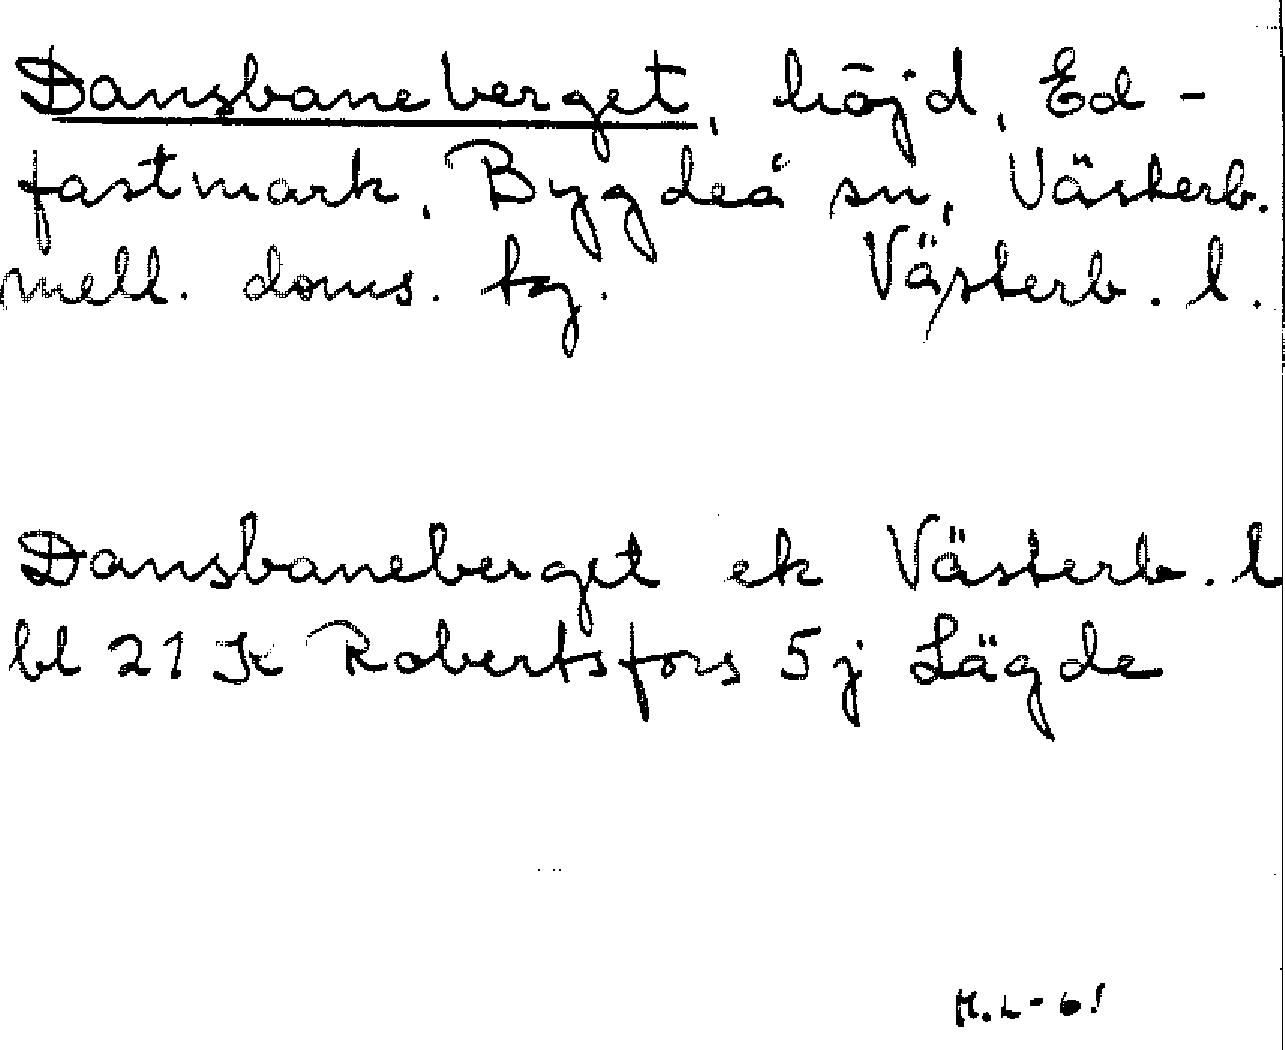 Dansbaneberget, höjd, Ed-
fastmark, Bygdeå sn, Västerb.
mell. doms. tg. Västerb. l.
Dansbaneberget ek Västerb. l
bl 21 K Robertsfors 5j Lägde
M.L-61